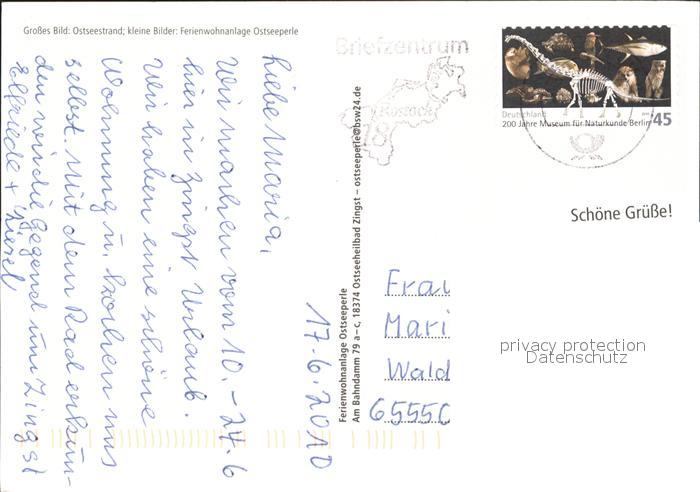 Großes Bild: Ostseestrand; kleine Bilder: Ferienwohnanlage Ostseeperle
17.6.2010
Liebe Maria,
Wir machen vom 10.-24.6
hier in Zingst Urlaub.
Wir haben eine schöne
Wohnung u. kochen uns
selbst. Mit dem Rad erkun-
den wir die Gegend um Zingst
Elfriede +
Ferienwohnanlage Ostseeperle
Am Bahndamm 79 a–c, 18374 Ostseeheilbad Zingst – ostseeperle@bsw24.de
Briefzentrum
Rostock
18
Deutschland
200 Jahre Museum für Naturkunde Berlin
45
Schöne Grüße!
Frau
Mari
Wald
6555
privacy protection
Datenschutz